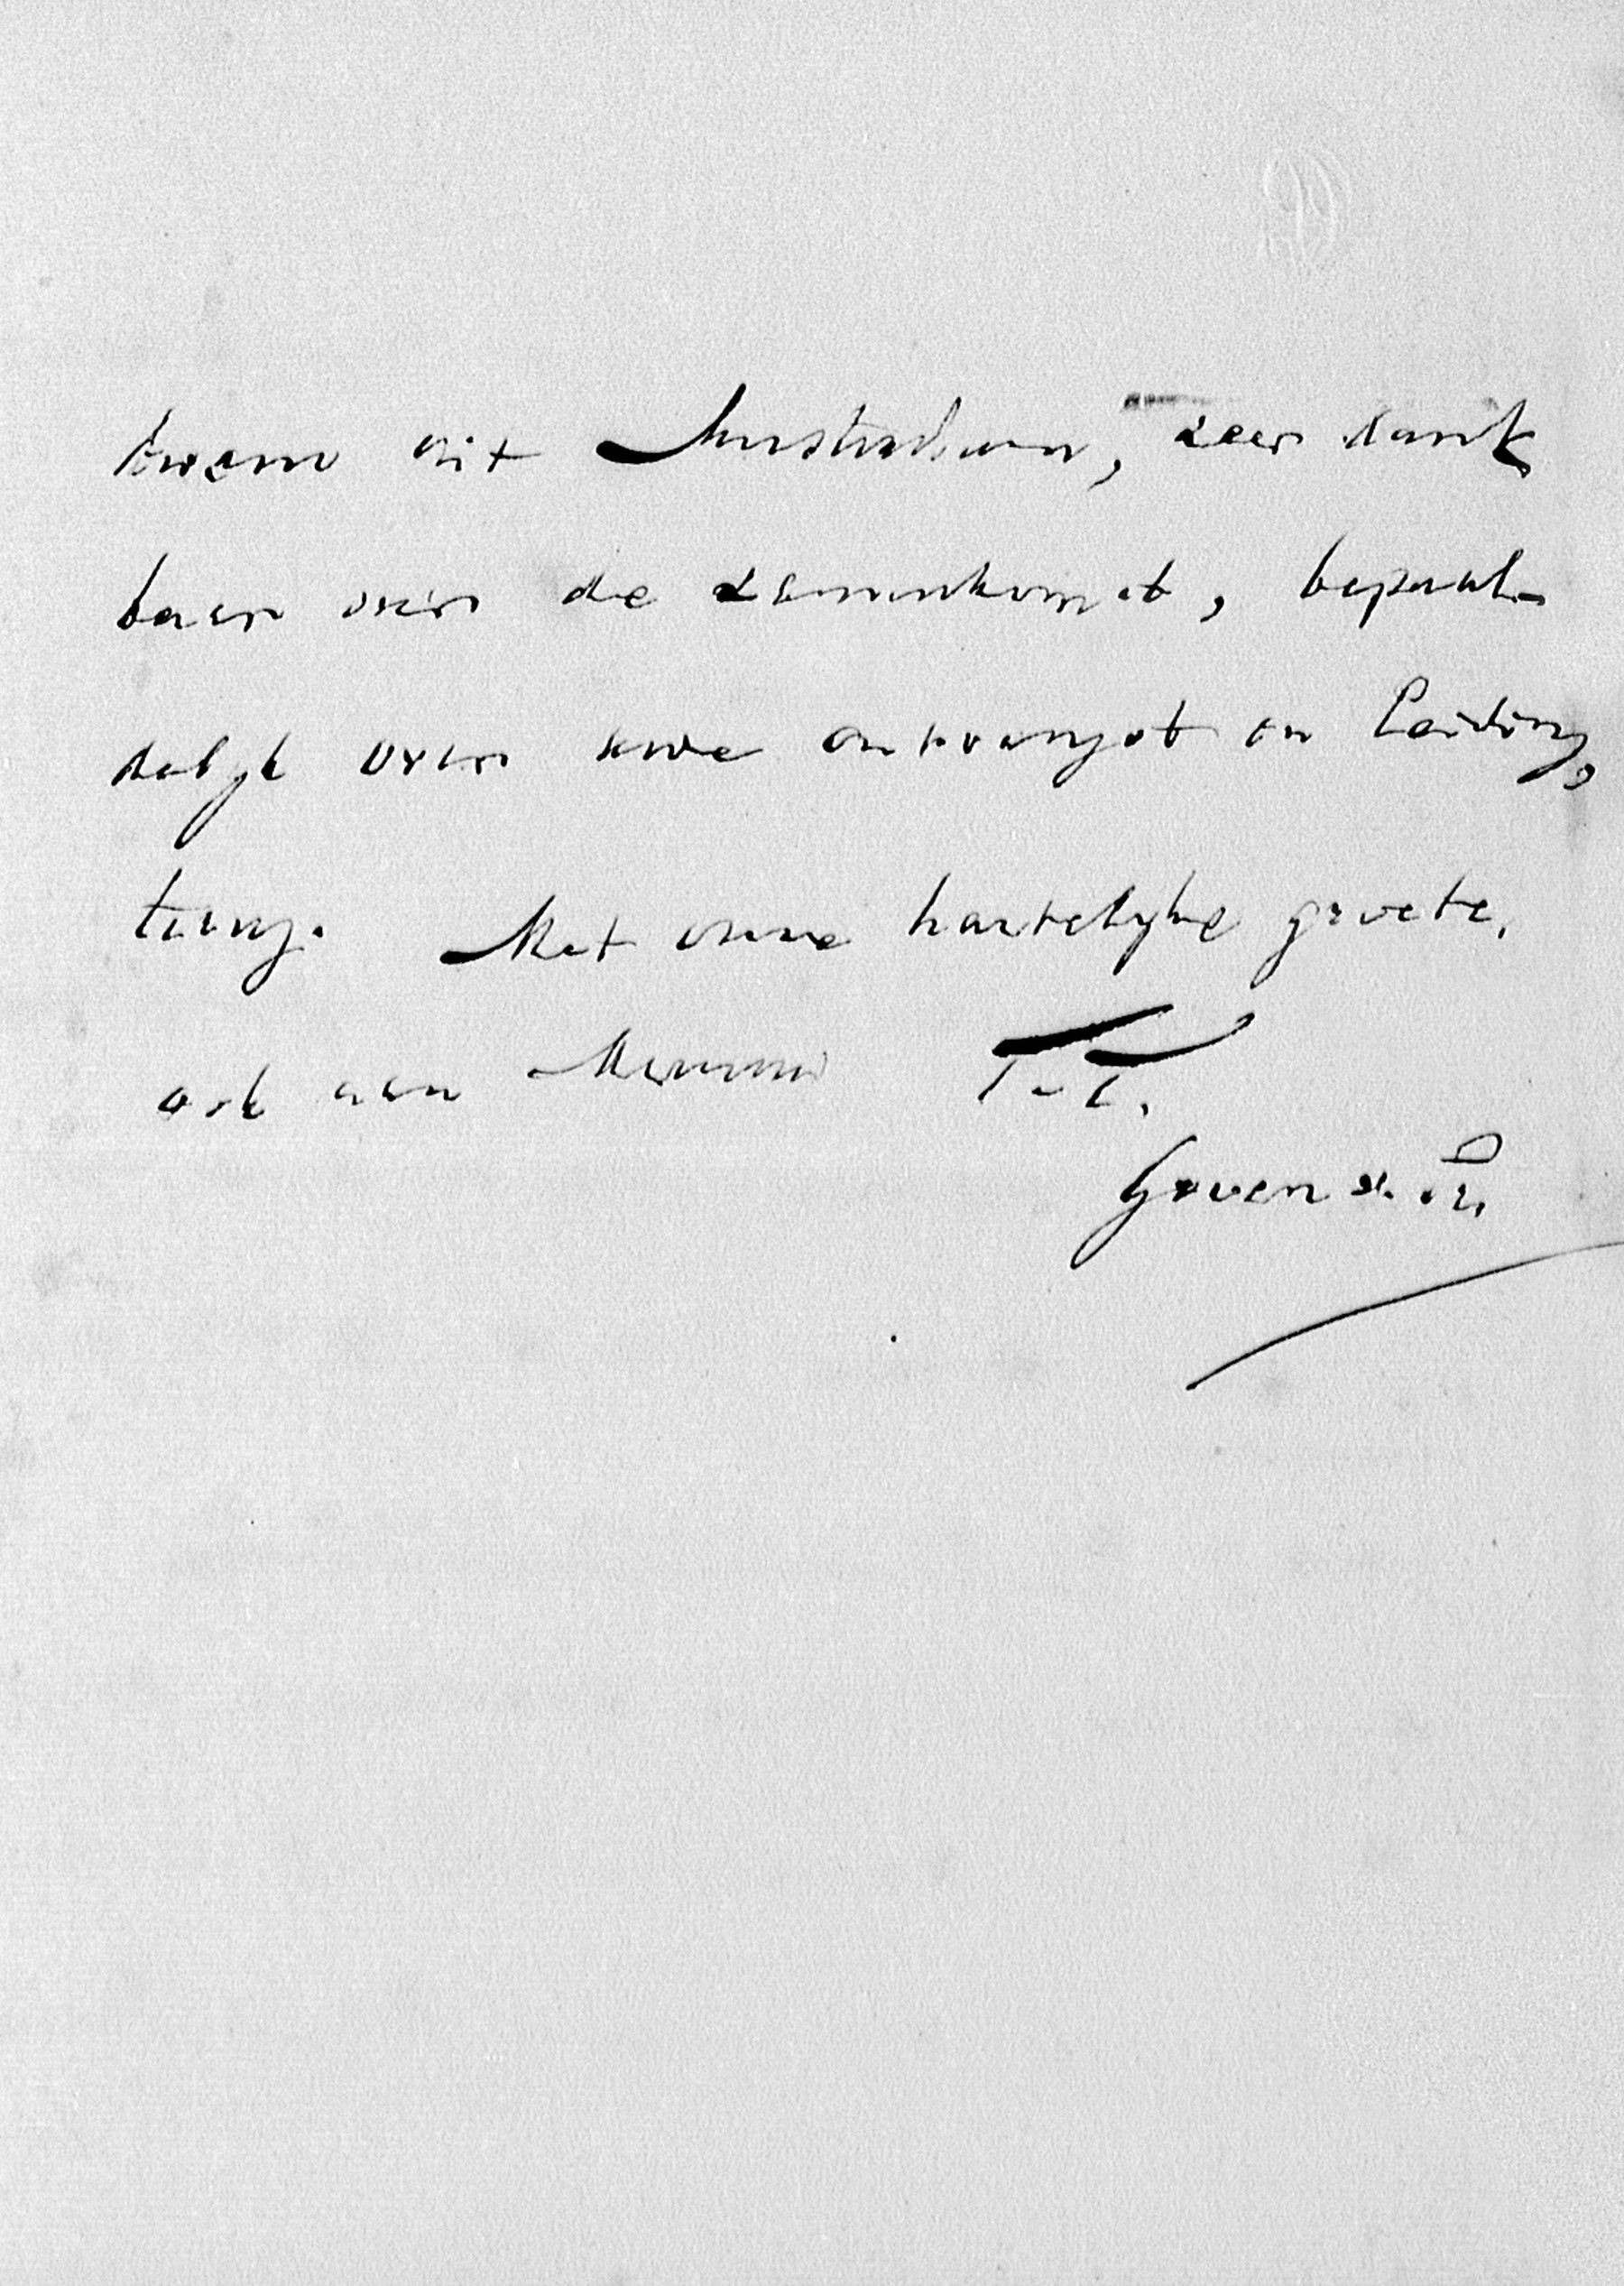 kwam uit Amsterdam, zeer dank
baar over de samenkomst, bepaal-
delijk over uwe ontvangst en leiding,
Met onze hartelijke groete,
ook aan Mimi t.t.